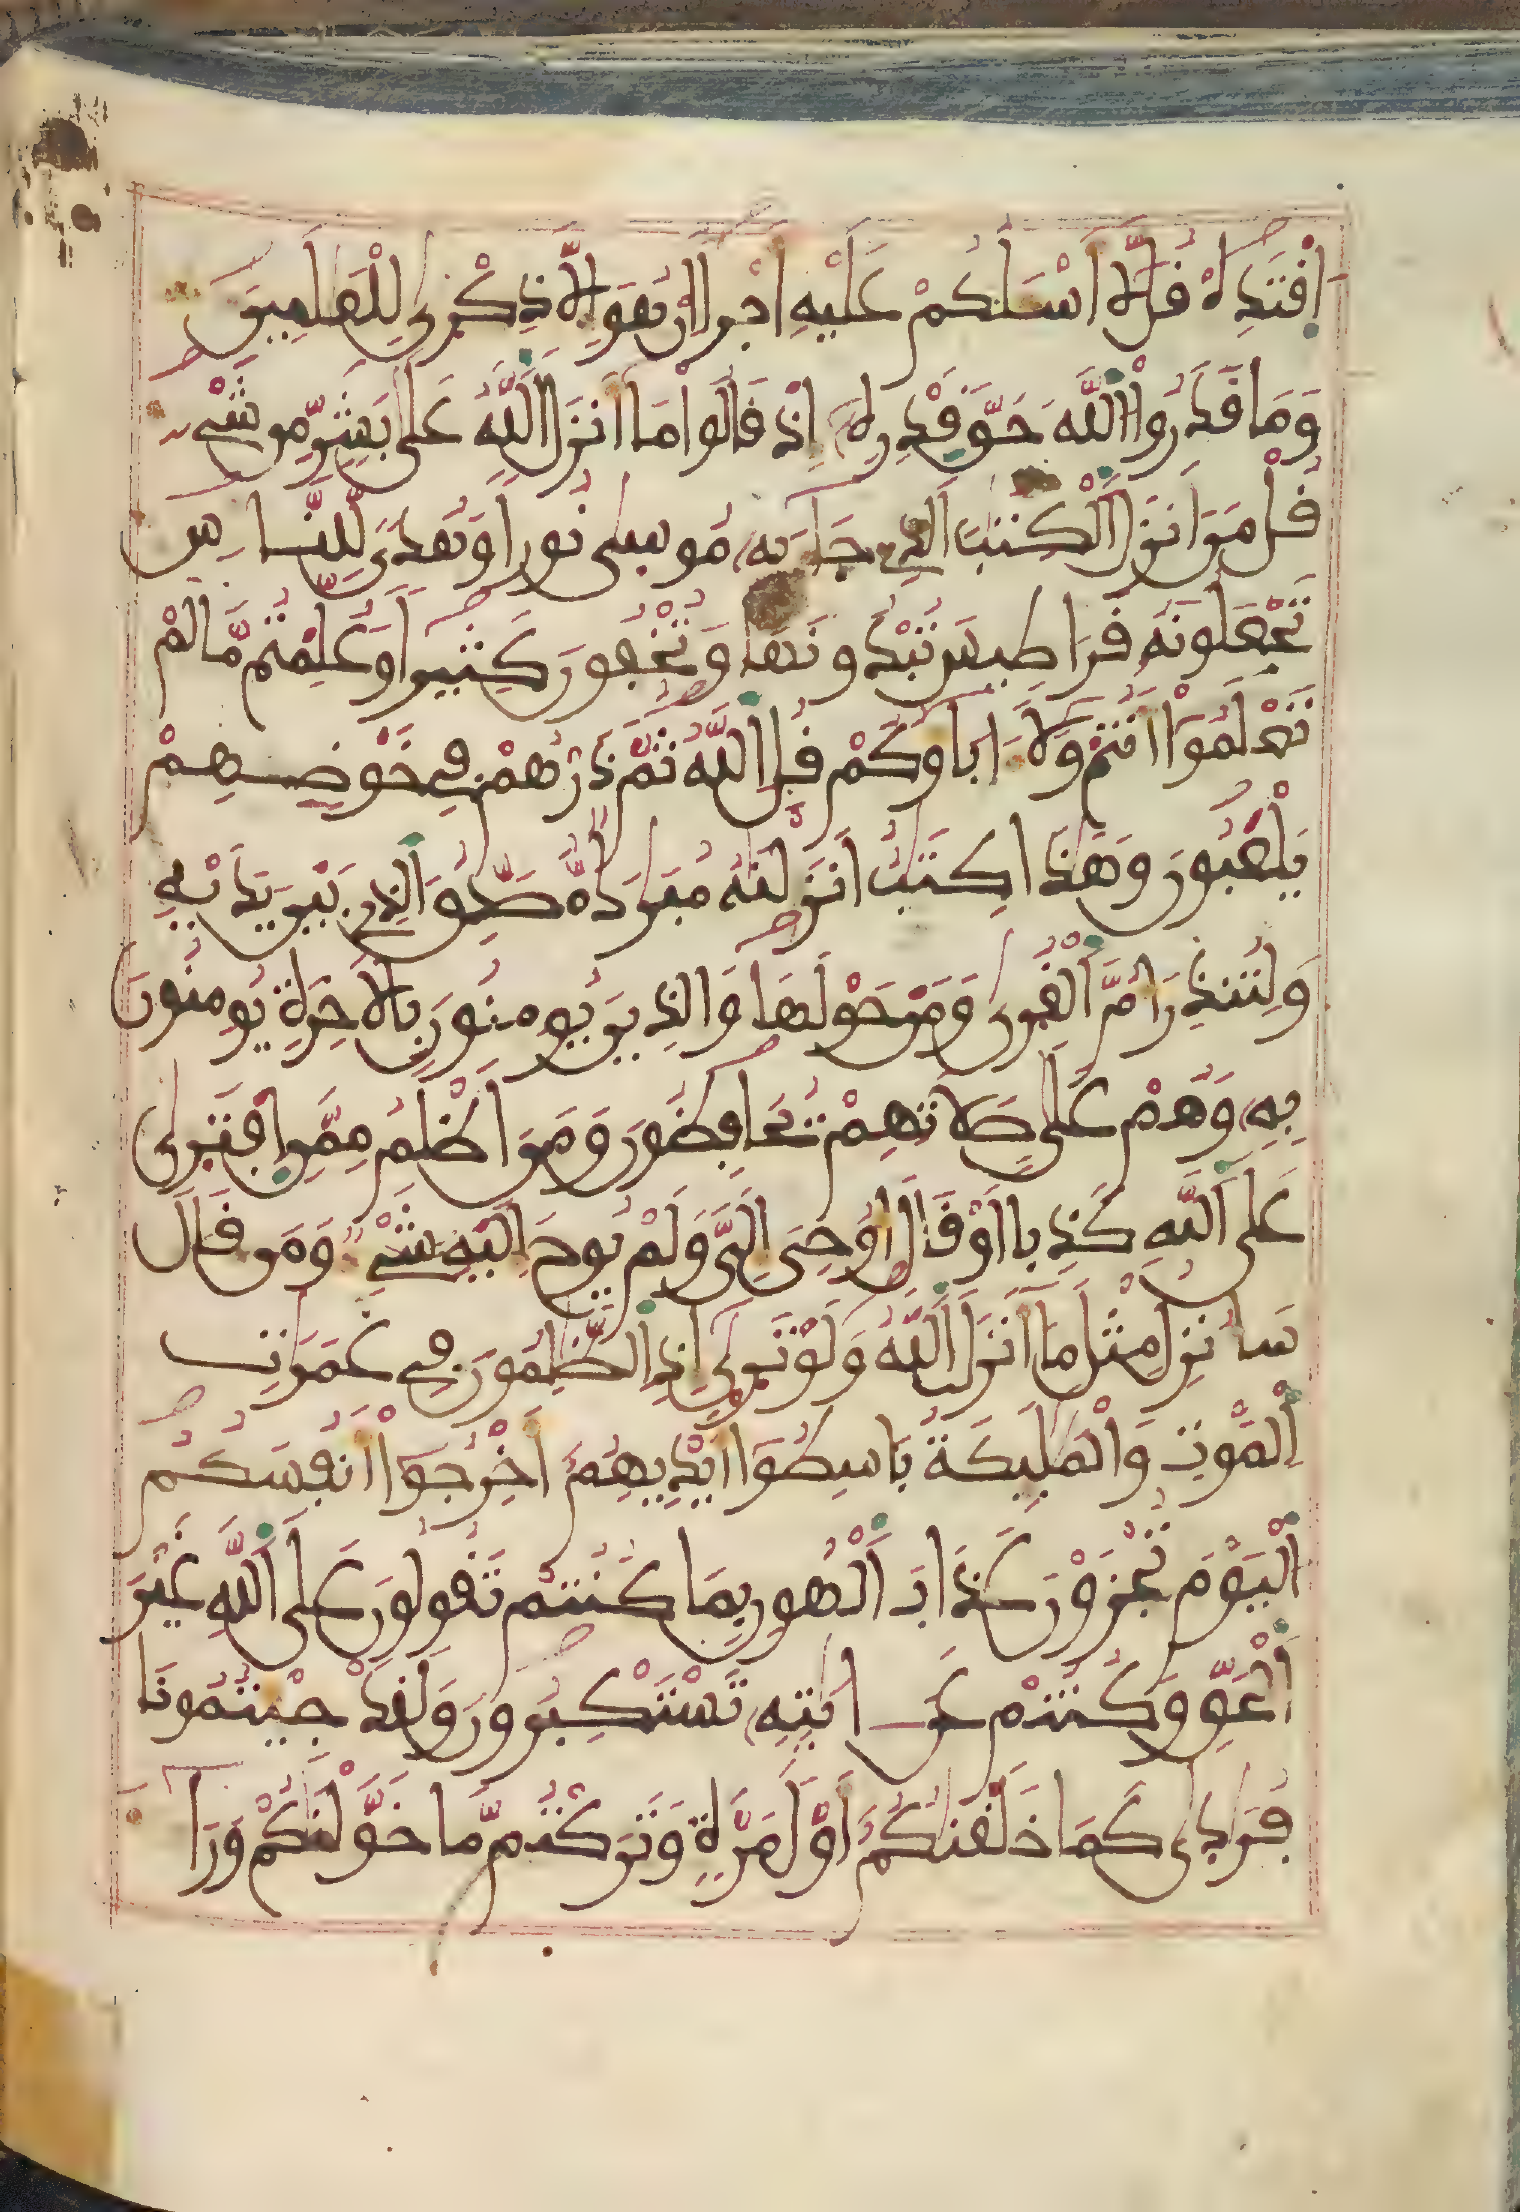 اِفْتَدِهْ قُل لَّا أَسْـَٔلُكُمْ عَلَيْهِ أَجْرًا اِنْ هُوَ إِلَّا ذِكْرٜىٰ لِلْعَٰلَمِينَ
وَمَا قَدَرُوا اٛللَّهَ حَقَّ قَدْرِهِۦ إِذْ قَالُوا مَا أَنزَلَ اَ۬للَّهُ عَلَىٰ بَشَرٍ مِّن شَےْءٍ
قُلْ مَنَ اَنزَلَ اَ۬لْكِتَٰبَ اَ۬لذِے جَآءَ بِهِۦ مُوسىٰ نُورًا وَهُدًى لِّلنَّاسِ
تَجْعَلُونَهُۥ قَرَاطِيسَ تُبْدُونَهَا وَتُخْفُونَ كَثِيرًا وَعُلِّمْتُم مَّا لَمْ
تَعْلَمُوٓا أَنتُمْ وَلَآ ءَابَآؤُكُمْ قُلِ اِ۬للَّهُ ثُمَّ ذَرْهُمْ فِے خَوْضِهِمْ
يَلْعَبُونَ وَهَٰذَا كِتَٰبٌ اَنزَلْنَٰهُ مُبَٰرَكٌ مُّصَدِّقُ اُ۬لذِے بَيْنَ يَدَيْهِ
وَلِتُنذِرَ أُمَّ اَ۬لْقُر۪ىٰ وَمَنْ حَوْلَهَا وَالذِينَ يُومِنُونَ بِالَاخِرَةِ يُومِنُونَ
بِهِۦ وَهُمْ عَلَىٰ صَلَاتِهِمْ يُحَافِظُونَ وَمَنَ اَظْلَمُ مِمَّنِ اِ۪فْتَر۪ىٰ
عَلَى اَ۬للَّهِ كَذِبًا اَوْ قَالَ أُوحِيَ إِلَيَّ وَلَمْ يُوحَ إِلَيْهِ شَےْءٌ وَمَن قَالَ
سَأُنزِلُ مِثْلَ مَآ أَنزَلَ اَ۬للَّهُ وَلَوْ تَر۪ىٰ إِذِ اِ۬لظَّٰلِمُونَ فِے غَمَرَٰتِ
اِ۬لْمَوْتِ وَالْمَلَٰٓئِكَةُ بَاسِطُوٓا أَيْدِيهِمُۥٓ أَخْرِجُوٓا أَنفُسَكُمُ
اُ۬لْيَوْمَ تُجْزَوْنَ عَذَابَ اَ۬لْهُونِ بِمَا كُنتُمْ تَقُولُونَ عَلَى اَ۬للَّهِ غَيْرَ
اَ۬لْحَقِّ وَكُنتُمْ عَنَ اٰيَٰتِهِۦ تَسْتَكْبِرُونَ وَلَقَدْ جِئْتُمُونَا
فُرَٰد۪ىٰ كَمَا خَلَقْنَٰكُمُۥٓ أَوَّلَ مَرَّةٍ وَتَرَكْتُم مَّا خَوَّلْنَٰكُمْ وَرَآءَ